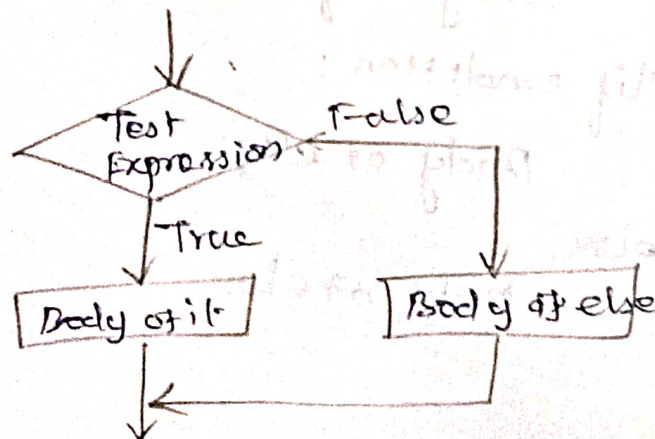 Test
Expression
False
True
Body of if
Body of else